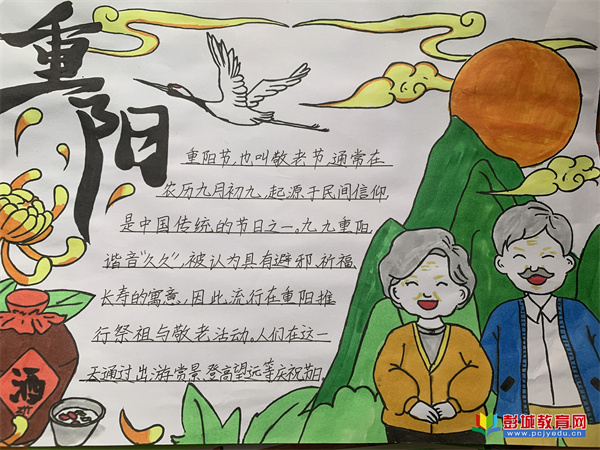 重阳
重阳节,也叫敬老节,通常在
农历九月初九,起源于民间信仰,
是中国传统的节日之一,九九重阳,
谐音"久久",被认为具有避邪、祈福、
长寿的寓意,因此流行在重阳推
行祭祖与敬老活动,人们在这一
天通过出游赏景、登高望远等庆祝节日
酒
彭城教育网
www.pcjyedu.cn